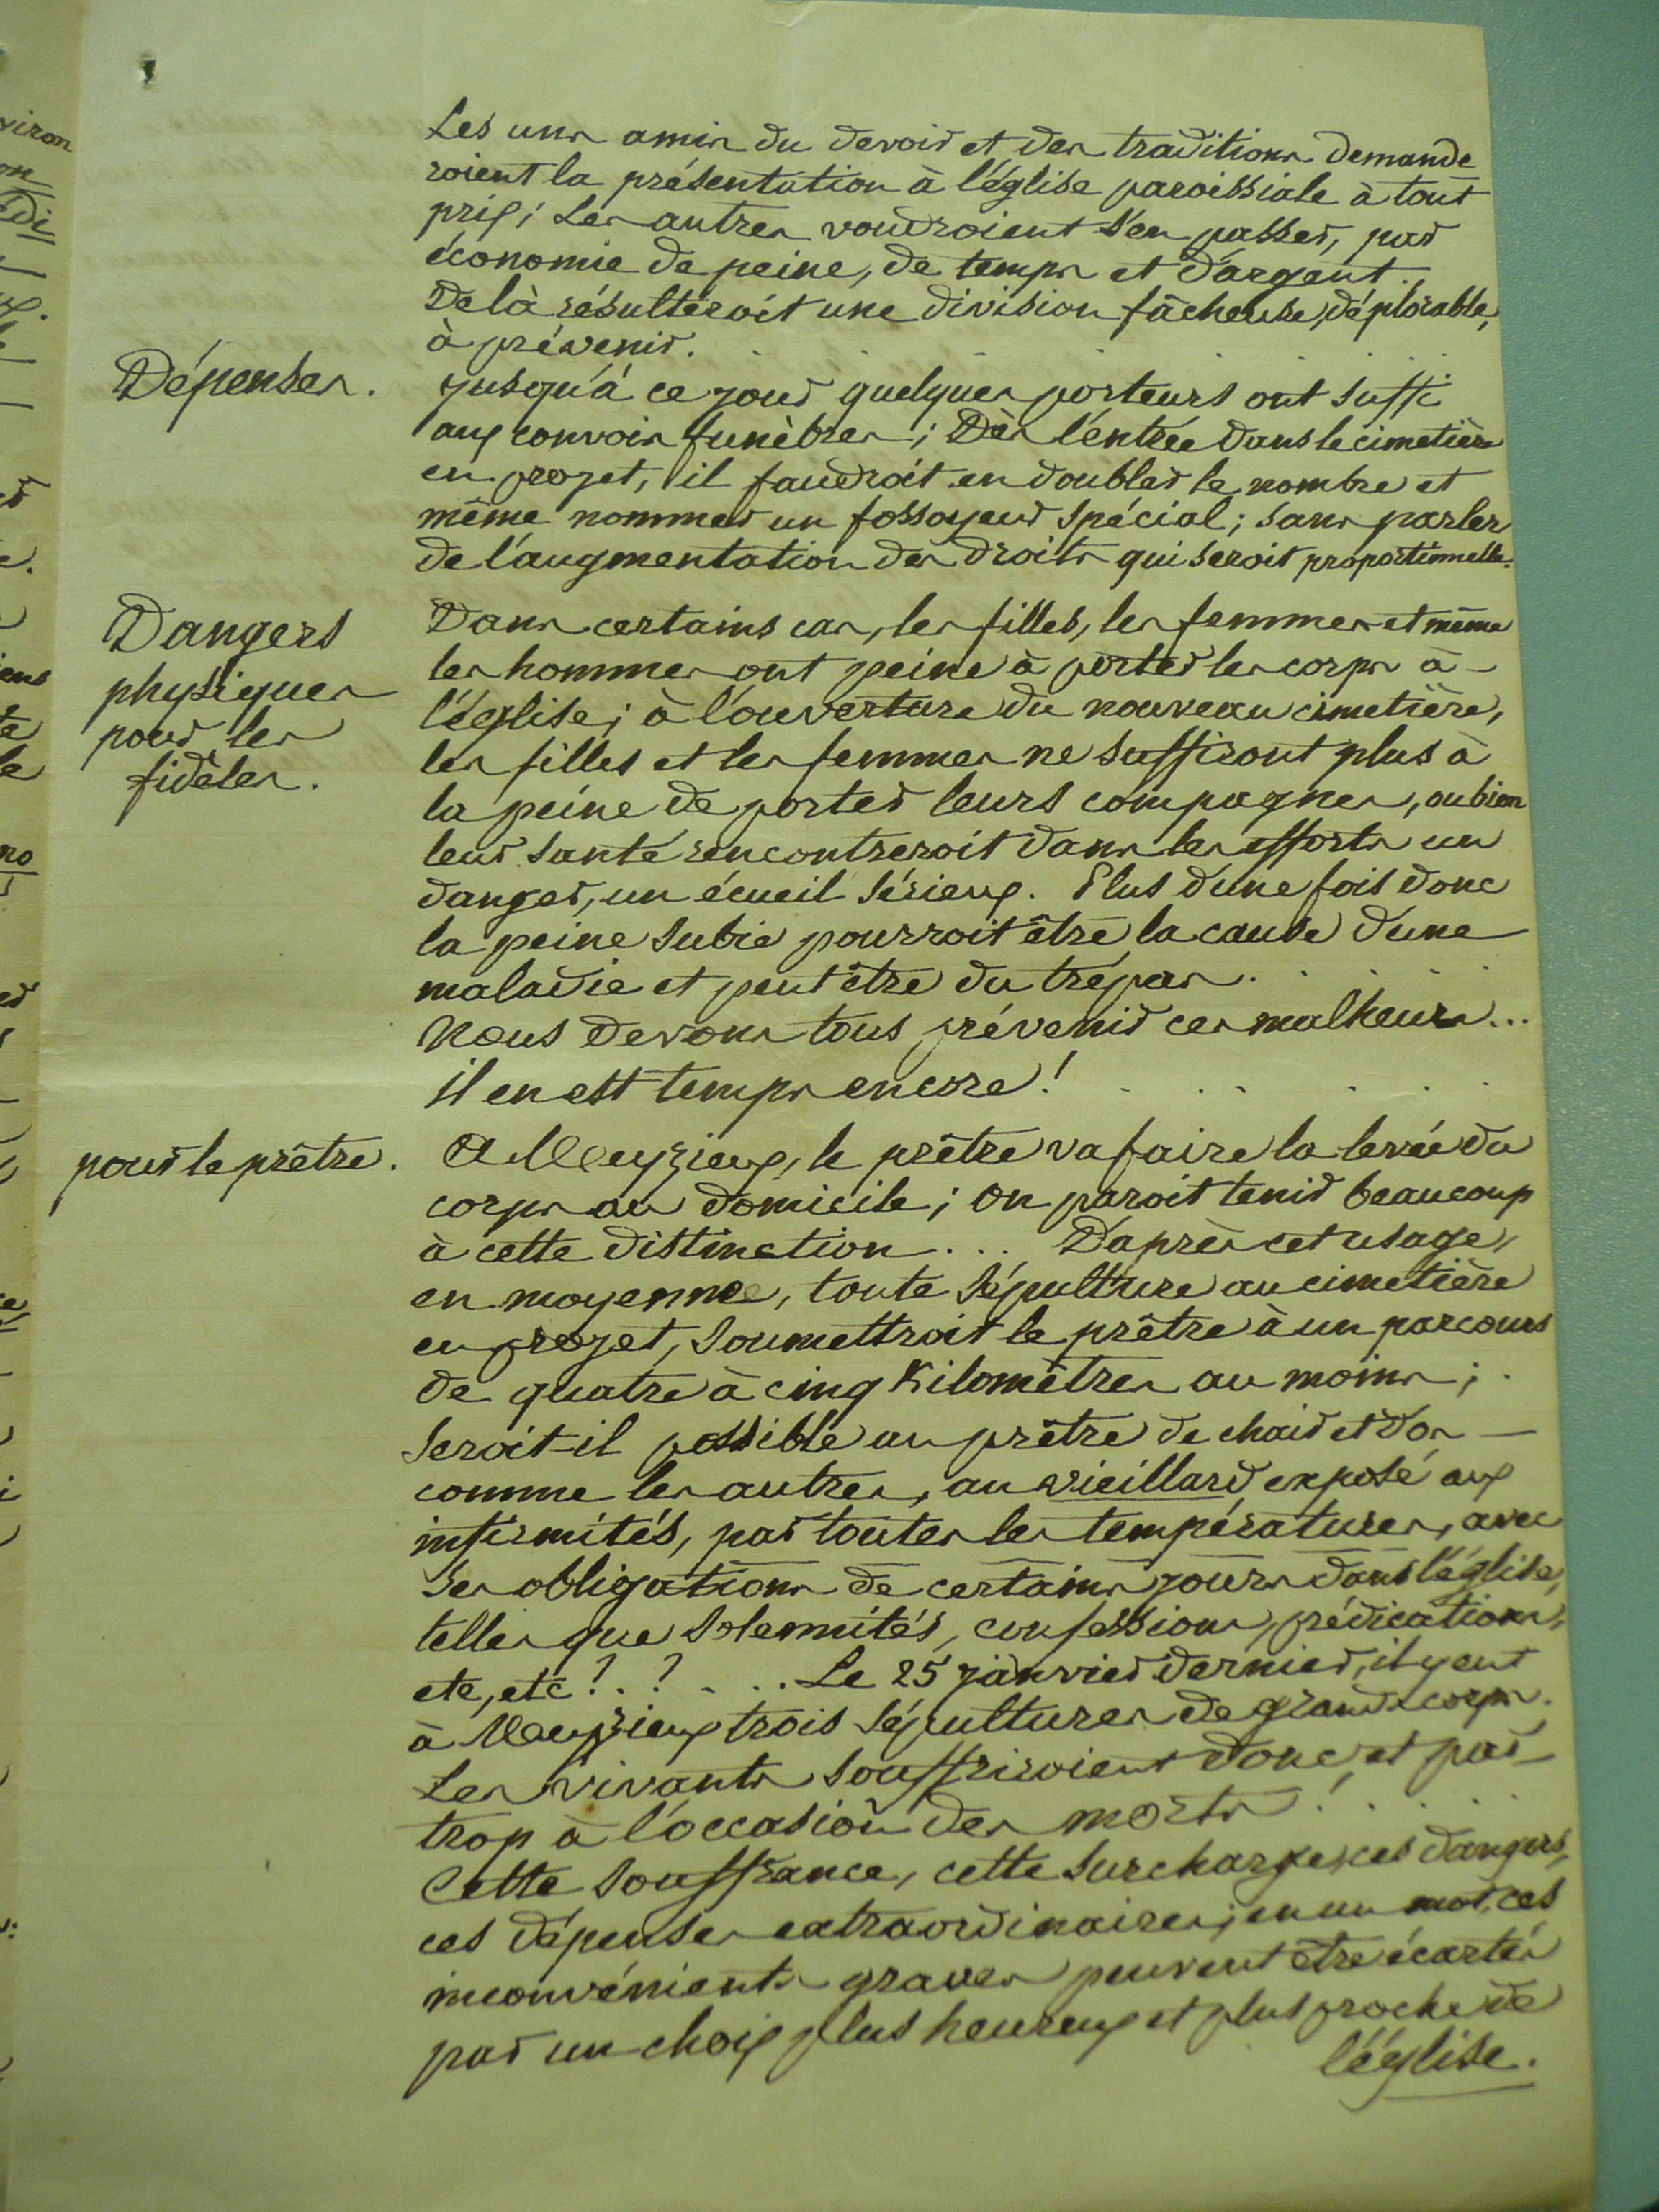 Les uns amis du devoir et des traditions demande
roient la présentation à l'église paroissiale à tout
prix; Les autres voudroient s'en passer, par
économie de peine, de temps et d'argent.
De là résulteroit une division fâcheuse, déplorable,
à prévenir.
Dépenses.
Jusqu'à ce jour quelques porteurs ont suffi
aux convois funèbres; Dès l'entrée dans le cimetière
en projet, il faudroit en doubler le nombre et
même nommer un fossoyeur spécial; sans parler
de l'augmentation des droits qui seroit proportionnelle.
Dangers
physiques
pour les
fidèles.
Dans certains cas, les filles, les femmes et même
les hommes ont peine à porter les corps à
l'église; à l'ouverture du nouveau cimetière,
les filles et les femmes ne suffiront plus à
la peine de porter leurs compagnes, ou bien
leur santé rencontreroit dans les efforts un
danger, un écueil sérieux. Plus d'une fois donc
la peine subie pourroit être la cause d'une
maladie et peut être du trépas.
Nous devons tous prévenir ces malheurs...
il en est temps encore!
pour le prêtre.
A Meyzieux, le prêtre va faire la levée du
corps au domicile; on paroit tenir beaucoup
à cette distinction... D'après cet usage,
en moyenne, toute sépulture au cimetière
en projet, soumettroit le prêtre à un parcours
de quatre à cinq Kilomètres au moins;
Seroit-il possible au prêtre de chair et d'os
comme les autres, au vieillard exposé aux
infirmités, par toutes les températures, avec
ses obligations de certains jours dans l'église,
telles que solemnités, confessions, prédications,
etc, etc?..?.... Le 25 janvier dernier, il y eut
à Meyzieux trois sépultures de grands corps.
Les vivants souffriroient donc, et par
trop à l'occasion des morts!.....
Cette souffrance, cette surcharge, ces dangers,
ces dépenses extraordinaires; en un mot, ces
inconvénients graves peuvent être écartés
par un choix plus heureux et plus proche de
l'église.